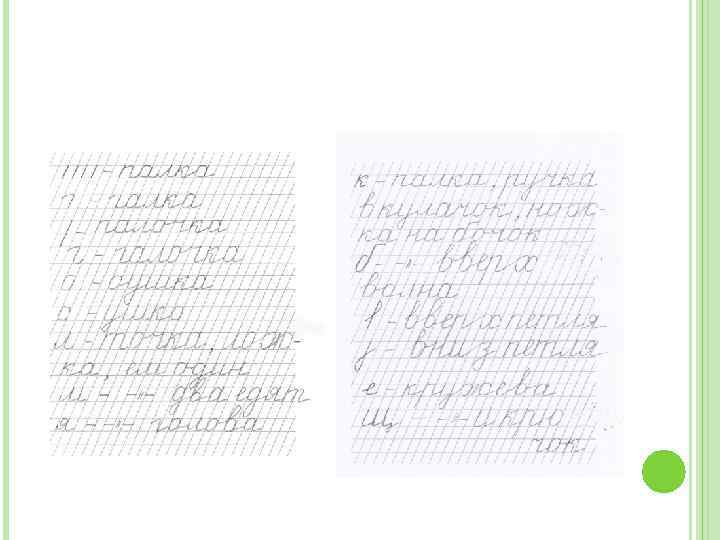 ııı - палка
г - галка
ȷ - палочка
г - галочка
о - сушка
с - ушко
л - точка, лож-
ка, ем один
м - -"- два едят
я - -"- голова
к - палка, ручка
в кулачок, нож-
ка на бочок
б - -"- вверх
волна
ℓ - вверх петля
j - вниз петля
е - кружева
щ - -"- и крю
чок